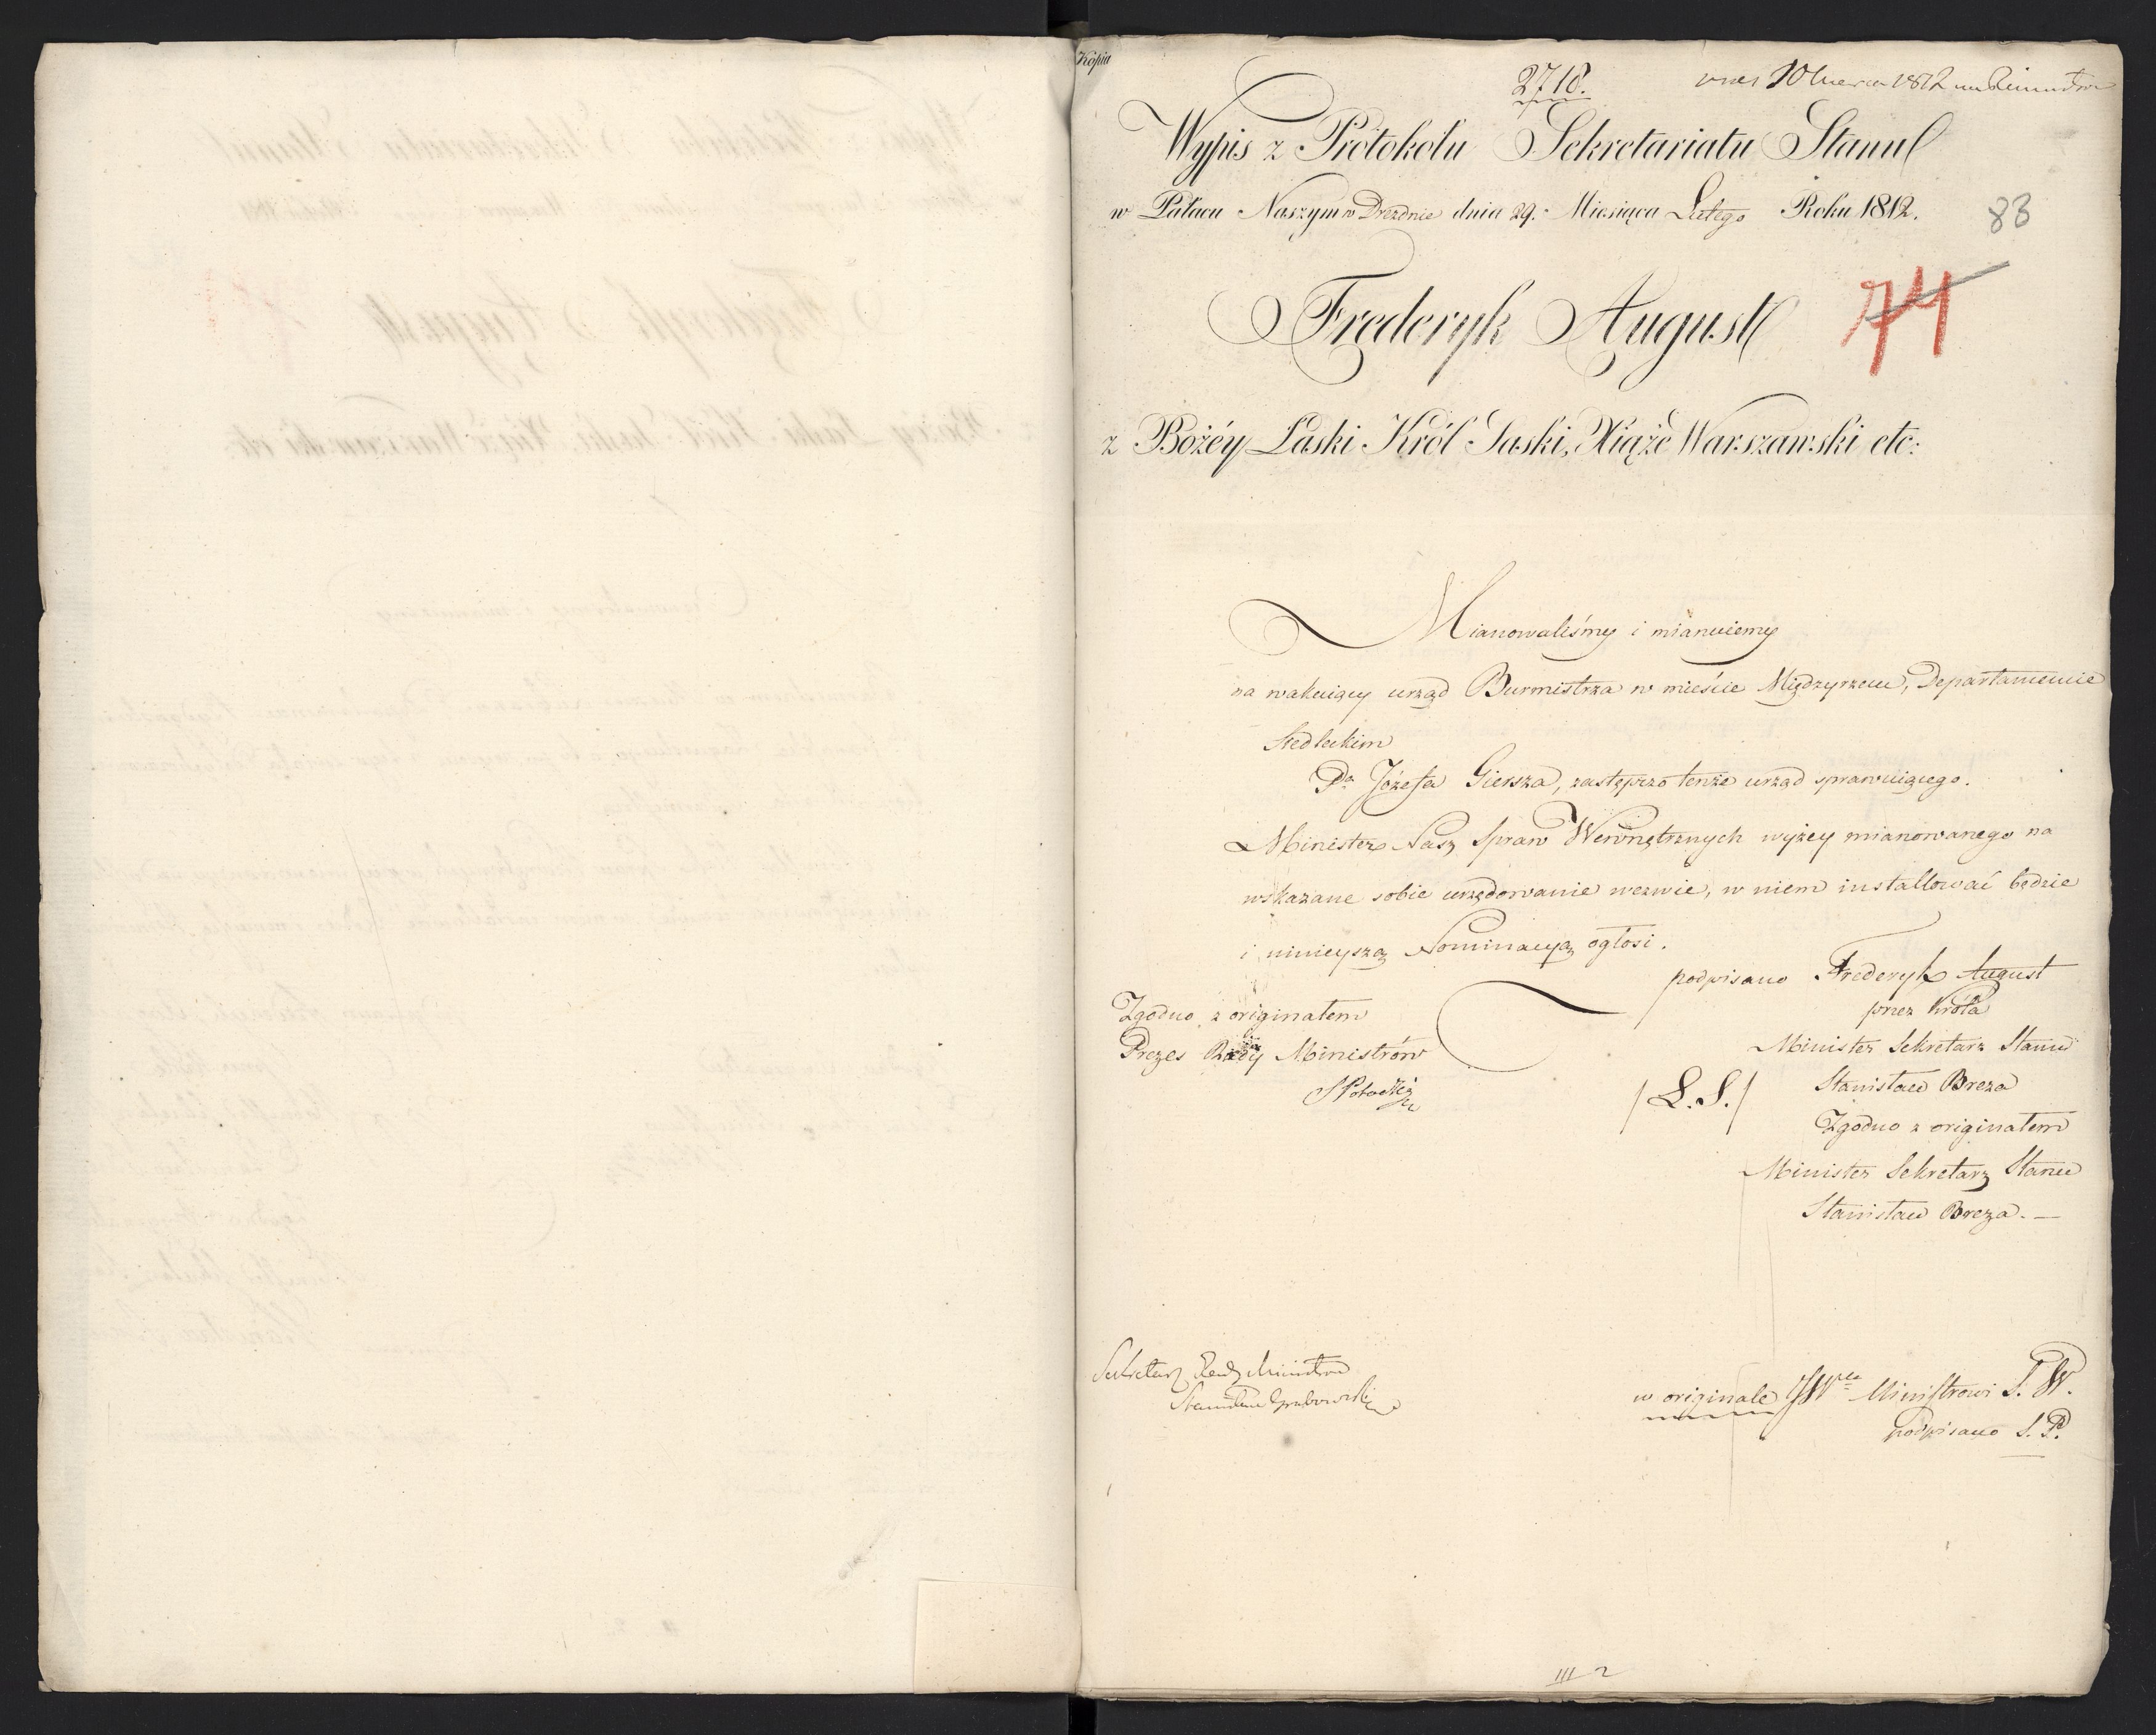 Kopia
2718.
10 1812
Wypis z Protokołu Sekretariatu Stanu
w Pałacu Naszym w Dreźnie dnia 29. Miesiąca Lutego Roku 1812.
83
Frederyk August
74
z Bożéy Łaski Król Saski, Xiąże Warszawski etc:
Mianowaliśmy i mianuiemy
na wakuiący urząd Burmistrza w mieście Międzyrzecu, Departamencie
Siedleckim
Pa Józefa Giersza, zastępczo tenże urząd sprawuiącego.
Minister Nasz Spraw Wewnętrznych wyżey mianowanego na
wskazane sobie urzędowanie wezwie, w niem installować będzie
i ninieyszą Nominacyą ogłosi.
podpisano Frederyk August
przez Króla
Minister Sekretarz Stanu
/L.S./ Stanisław Breza
Zgodno z originałem
Minister Sekretarz Stanu
Stanisław Breza. —
Zgodno z originałem
Prezes Rady Ministrów
S Potocki
Sekretarz Rady Ministrów
Stanisław Grabowski
w originale JW Ministrowi S. W.
podpisano S. P.
III 2